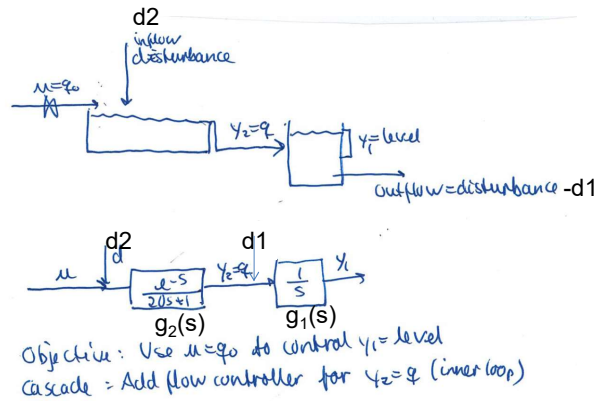 d2
inflow
disturbance
u=q₀
y₂=q
y₁=level
outflow=disturbance -d1
d2
d
d1
u
e-s
20s+1
y₂=q
1
s
y₁
g₂(s)
g₁(s)
Objective: Use u=q₀ to control y₁=level
Cascade: Add flow controller for y₂=q (inner loop)